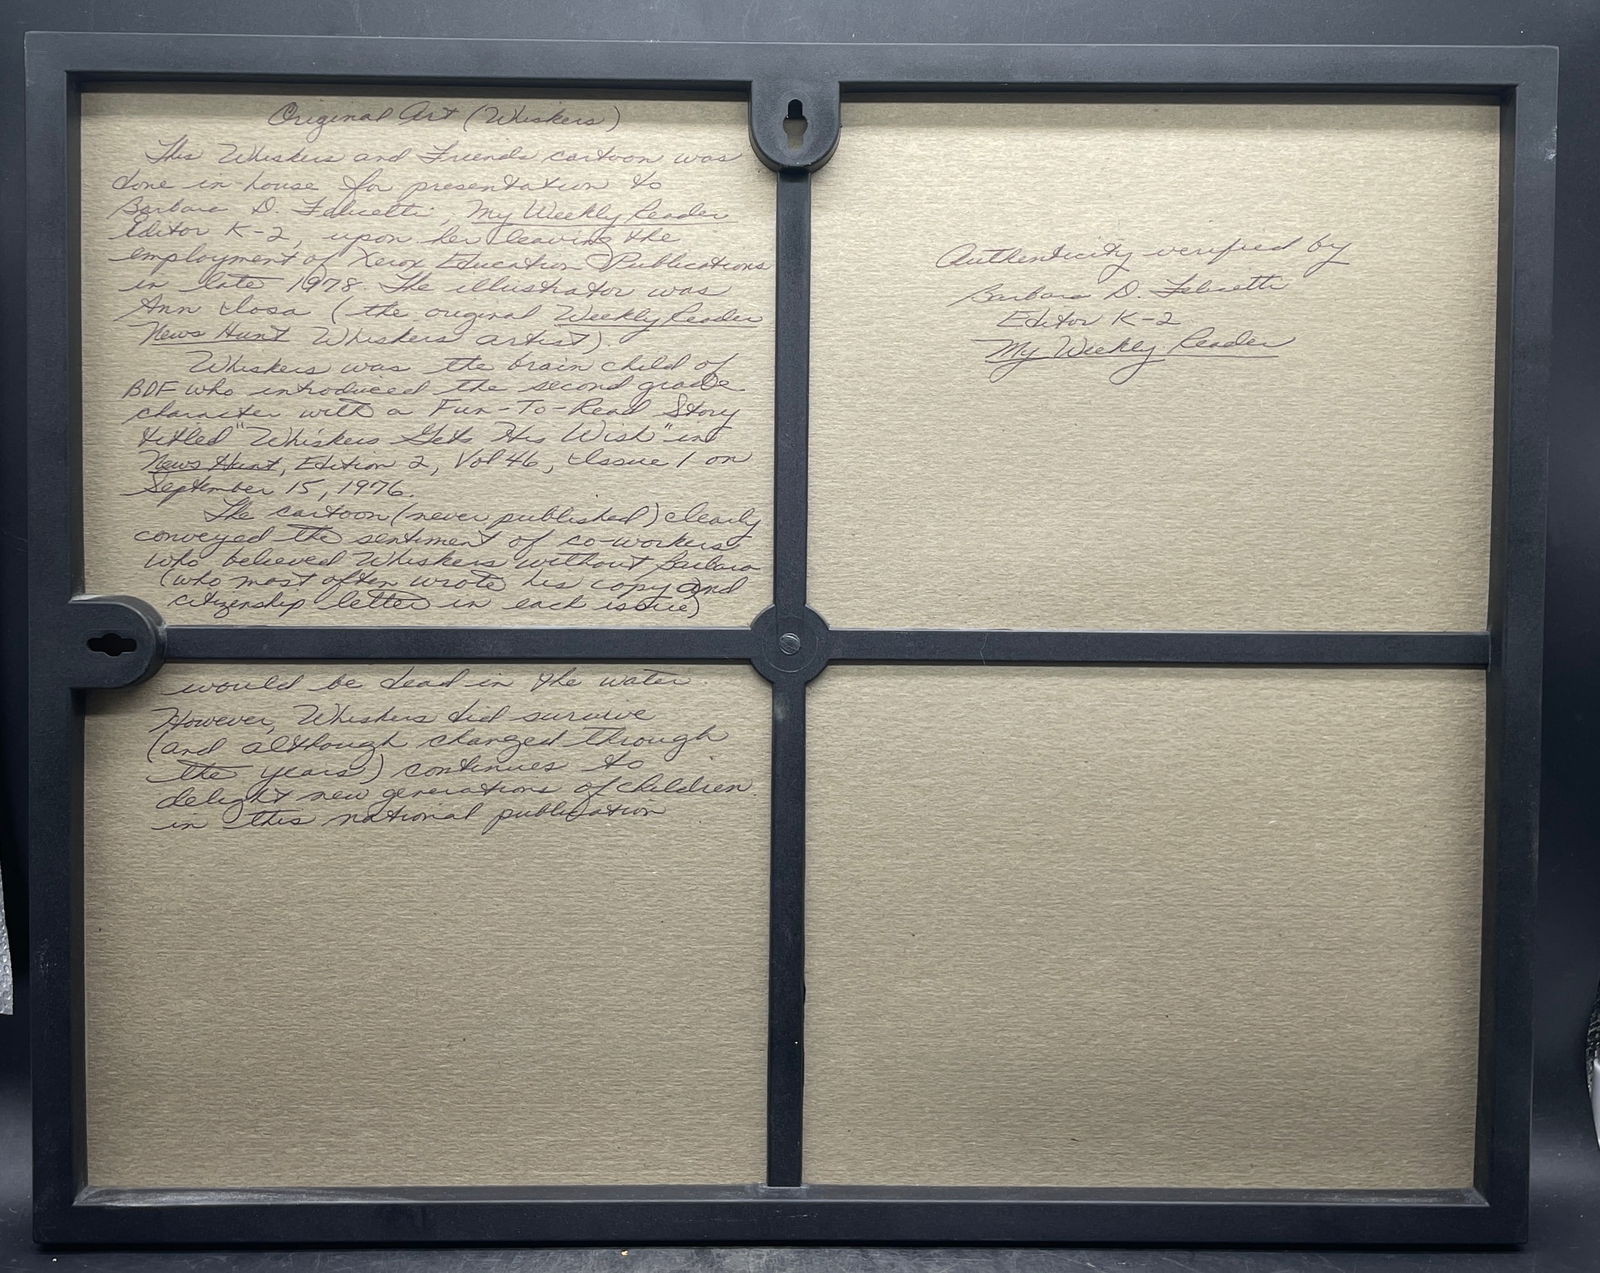 Original Art (Whiskers)
This Whiskers and Friends cartoon was
done in-house for presentation to
Barbara D. Felicetti, My Weekly Reader
Editor K-2, upon her leaving the
employment of Xerox Education Publications
in late 1978. The illustrator was
Ann Iosa (the original Weekly Reader
News Hunt Whiskers artist).
Whiskers was the brain child of
BDF who introduced the second grade
character with a Fun-To-Read Story
titled "Whiskers Gets His Wish" in
News Hunt, Edition 2, Vol 46, Issue 1 on
September 15, 1976.
The cartoon (never published) clearly
conveyed the sentiment of co-workers
who believed Whiskers without Barbara
(who most often wrote his copy and
citizenship letter in each issue)
would be dead in the water.
However, Whiskers did survive
(and although changed through
the years) continues to
delight new generations of children
in this national publication
Authenticity verified by
Barbara D. Felicetti
Editor K-2
My Weekly Reader